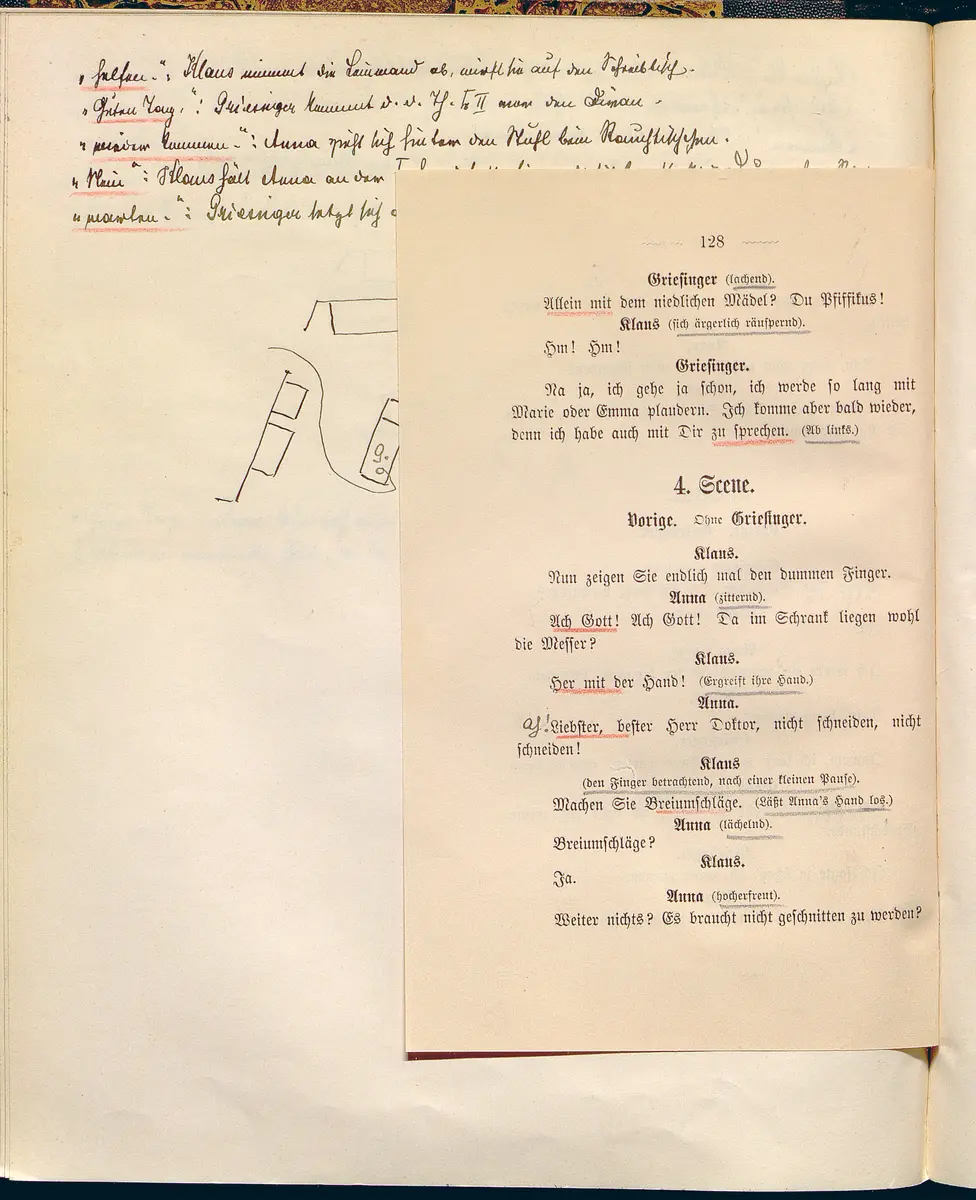 „helfen.“: Klaus nimmt die Leinwand ab, wirft sie auf den Schreibtisch.
„Guten Tag.“: Griesinger kommt d. d. Th. II vor den Divan.
„wieder kommen.“: Anna zieht sich hinter den Stuhl beim Rauchtischchen.
„Nein“: Klaus hält Anna an der
„warten.“: Griesinger setzt sich
128
Griesinger (lachend).
Allein mit dem niedlichen Mädel? Du Pfiffikus!
Klaus (sich ärgerlich räuspernd).
Hm! Hm!
Griesinger.
Na ja, ich gehe ja schon, ich werde so lang mit
Marie oder Emma plaudern. Ich komme aber bald wieder,
denn ich habe auch mit Dir zu sprechen. (Ab links.)
4. Scene.
Vorige. Ohne Griesinger.
Klaus.
Nun zeigen Sie endlich mal den dummen Finger.
Anna (zitternd).
Ach Gott! Ach Gott! Da im Schrank liegen wohl
die Messer?
Klaus.
Her mit der Hand! (Ergreift ihre Hand.)
Anna.
Liebster, bester Herr Doktor, nicht schneiden, nicht
schneiden!
Klaus
(den Finger betrachtend, nach einer kleinen Pause).
Machen Sie Breiumschläge. (Läßt Anna's Hand los.)
Anna (lächelnd).
Breiumschläge?
Klaus.
Ja.
Anna (hocherfreut).
Weiter nichts? Es braucht nicht geschnitten zu werden?